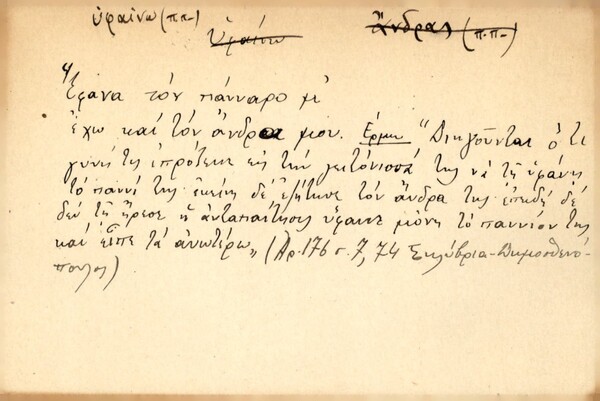 ὑφαίνω (ππ.)
Ὑφαίνω Ἄνδρας (π.π.)
Ἔφανα τὸν πάνναρο μ'
ἔχω καὶ τὸν ἄνδρα μου. Ἑρμ. "Διηγοῦνται ὅτι
γυνή τις ἐπρότεινε εἰς τὴν γειτόνισσά της νὰ τῇ ὑφάνῃ
τὸ παννί της ἐκείνη δὲ ἐζήτησε τὸν ἄνδρα της ἐπειδὴ δὲ
δὲν τῇ ἤρεσε ἡ ἀνταπαίτησις ὕφανε μόνη τὸ παννίον της
καὶ εἶπε τὰ ἀνωτέρω„ (Ἀρ. 176 σ. 7, 74 Σηλύβρια - Δημοσθενό-
πουλος)